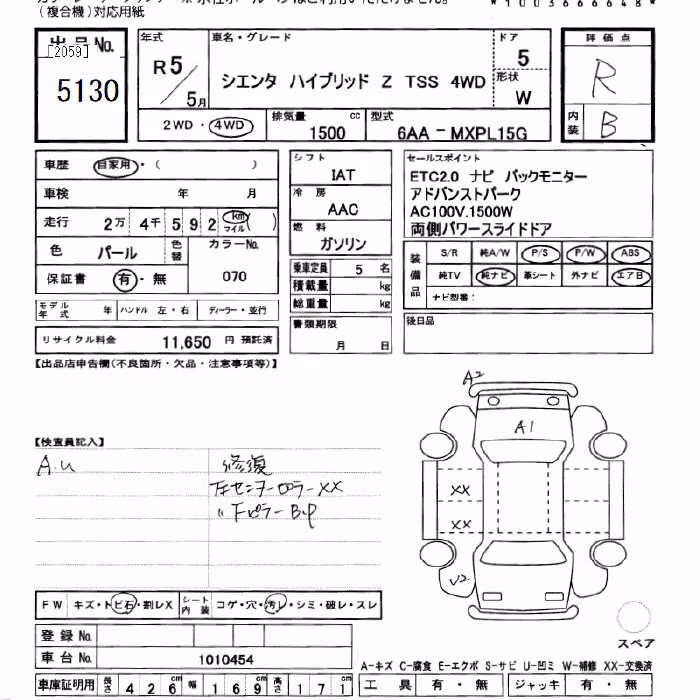 (複合機)対応用紙
*1003666648*
出品 No.
[2059]
5130
年式
R5/5月
車名・グレード
シエンタ ハイブリッド Z TSS 4WD
ドア
5
形状
W
2WD・4WD
排気量
1500 cc
型式
6AA - MXPL15G
評価点
R
内装
B
車歴 自家用・( )
車検 年 月
走行 2万 4千 5 9 2 km マイル ( )
色 パール
色替
カラーNo.
070
保証書 有・無
モデル年式 年 ハンドル 左・右 ディーラー・並行
リサイクル料金 11,650 円 預託済
シフト
IAT
冷房
AAC
燃料
ガソリン
乗車定員 5 名
積載量 kg
総重量 kg
書類期限
月 日
セールスポイント
ETC2.0 ナビ バックモニター
アドバンストパーク
AC100V.1500W
両側パワースライドドア
装備品
S/R 純A/W P/S P/W ABS
純TV 純ナビ 革シート 外ナビ エアB
ナビ型番:
後日品
【出品店申告欄(不良箇所・欠品・注意事項等)】
【検査員記入】
A.u
修復
左センターピラー XX
〃 下ピラー B.P
A2
A1
XX
XX
V2
スペア
FW キズ・トビ石・割レX
シート内装 コゲ・穴・汚レ・シミ・破レ・スレ
登録 No.
車台 No. 1010454
車庫証明用 長さ 426 cm 幅 169 cm 高さ 171 cm
A-キズ C-腐食 E-エクボ S-サビ U-凹ミ W-補修 XX-交換済
工具 有・無 ジャッキ 有・無